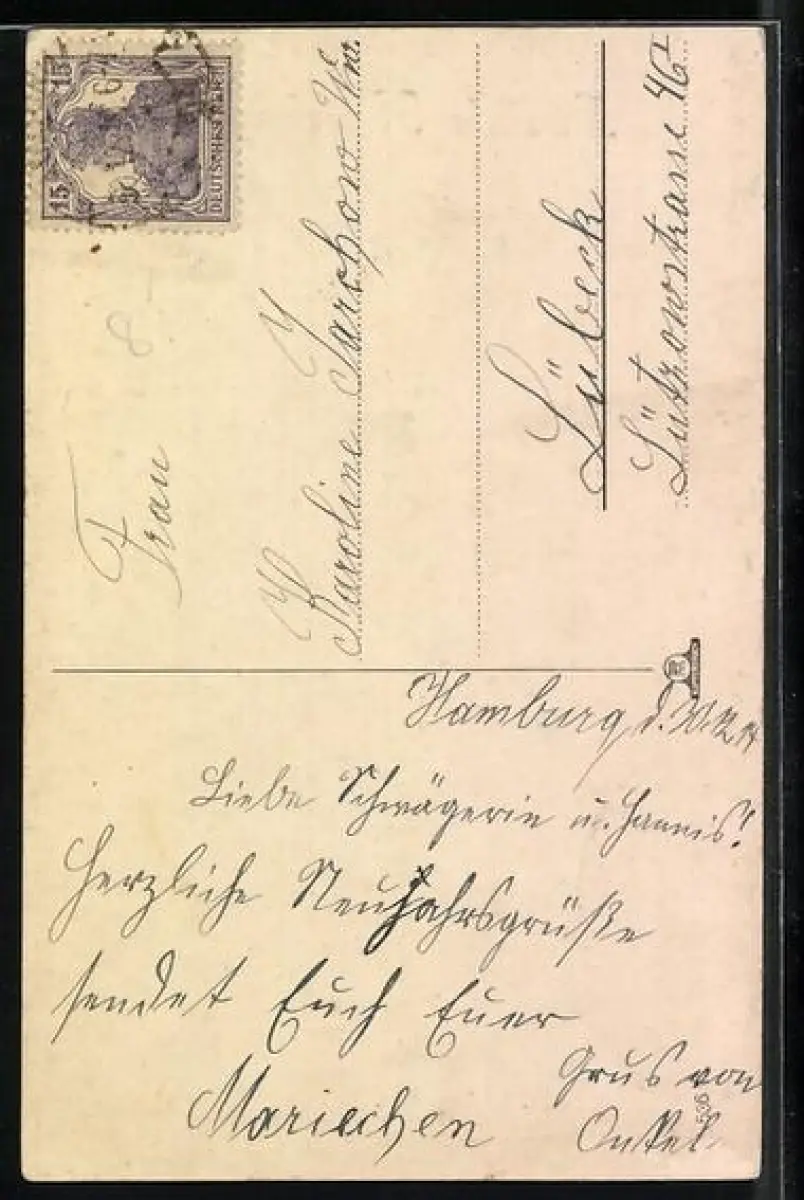 15 15
DEUTSCHES REICH
8
Frau
Karoline Jarchow Ww.
Lübeck
Lützowstrasse 46 I
Hamburg d.
Liebe Schwägerin u. Hannis!
Herzliche Neujahrsgrüße
sendet Euch Euer
Mariechen
Grus von
Onkel